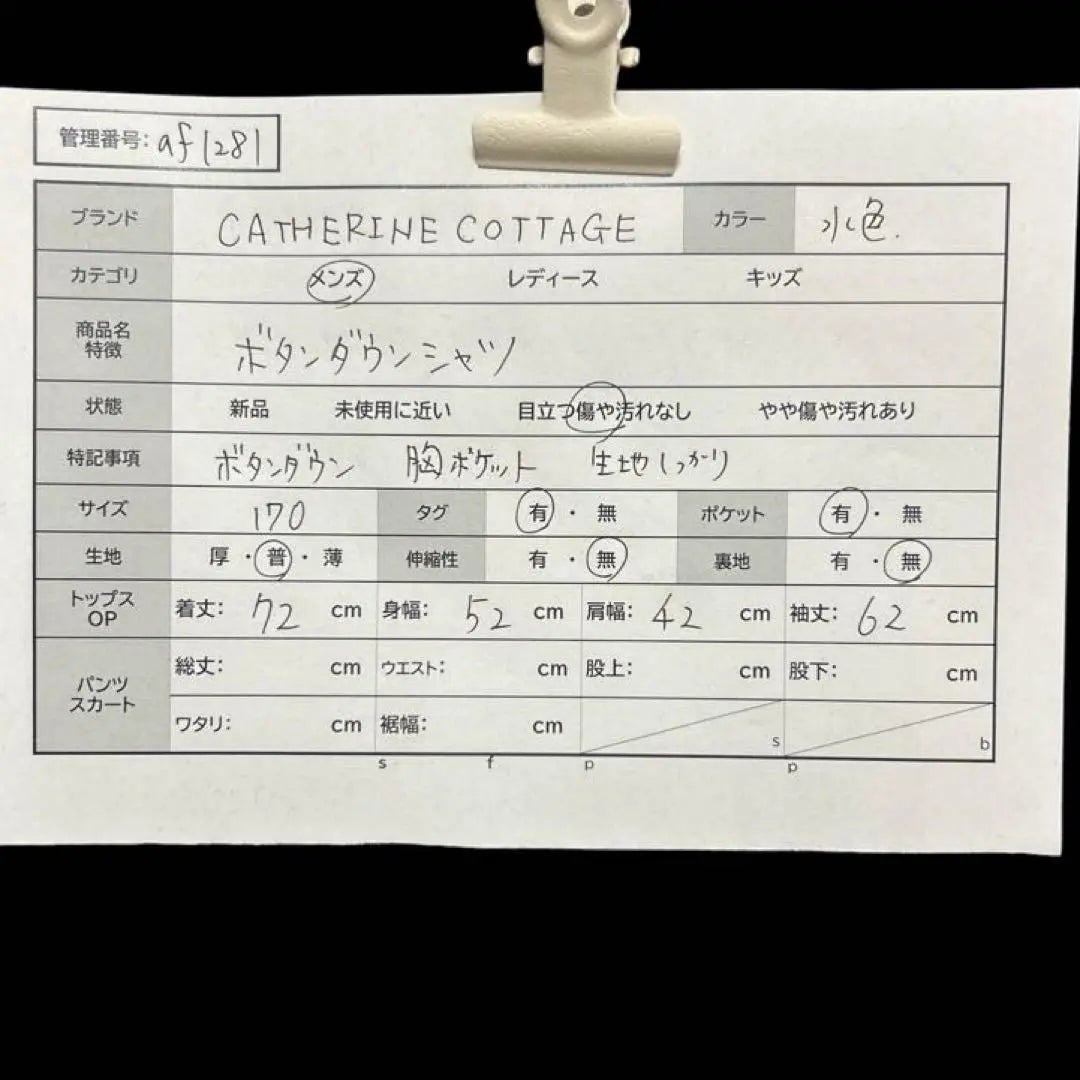 管理番号: af1281
ブランド CATHERINE COTTAGE カラー 水色.
カテゴリ メンズ レディース キッズ
商品名 特徴 ボタンダウンシャツ
状態 新品 未使用に近い 目立つ傷や汚れなし やや傷や汚れあり
特記事項 ボタンダウン 胸ポケット 生地しっかり
サイズ 170 タグ 有・無 ポケット 有・無
生地 厚・普・薄 伸縮性 有・無 裏地 有・無
トップス OP 着丈: 72 cm 身幅: 52 cm 肩幅: 42 cm 袖丈: 62 cm
パンツ スカート 総丈: cm ウエスト: cm 股上: cm 股下: cm
ワタリ: cm 裾幅: cm s b
s f p p